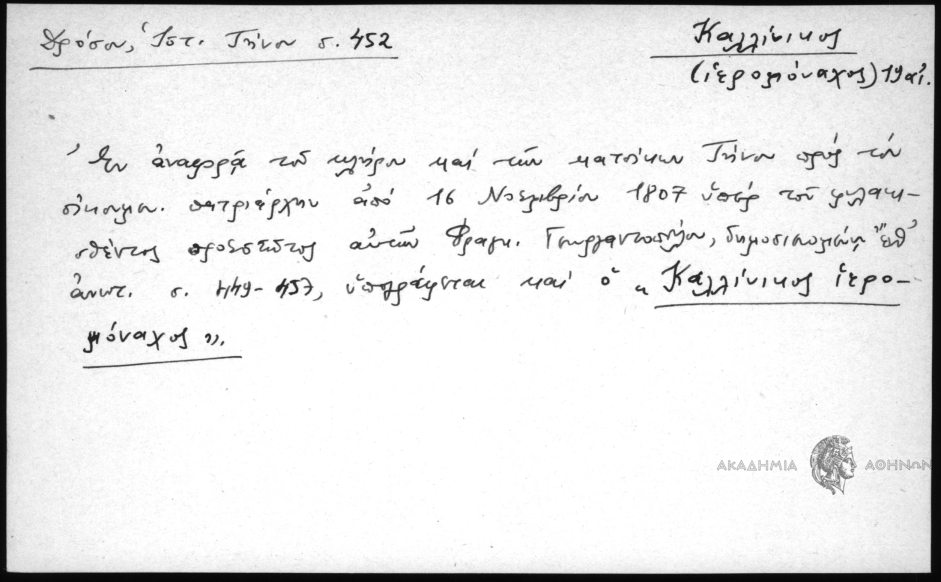 Δρόσου, Ἱστ. Τήνου σ. 452
Καλλίνικος
(ἱερομόναχος) 19 αἰ.
Ἐν ἀναφορᾷ τοῦ κλήρου καὶ τῶν κατοίκων Τήνου πρὸς τὸν
οἰκουμ. πατριάρχην ἀπὸ 16 Νοεμβρίου 1807 ὑπὲρ τοῦ φυλακι-
σθέντος προεστῶτος αὐτῶν Φραγκ. Γεωργαντοπούλου, ἐνθ'
ἀνωτ. σ. 449-457, ὑπογράφεται καὶ ὁ «Καλλίνικος ἱερο-
μόναχος».
ΑΚΑΔΗΜΙΑ ΑΘΗΝΩΝ